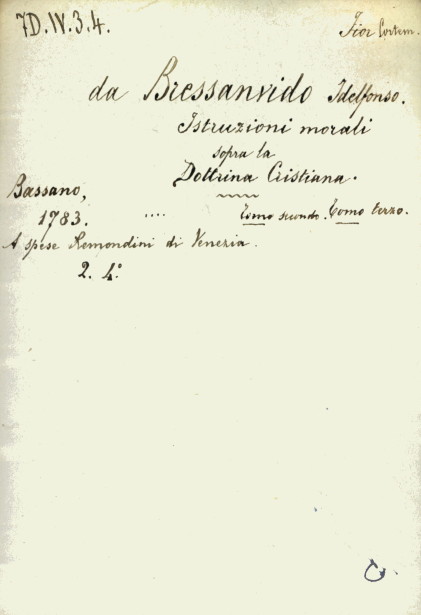 7D.IV.3.4.
Fior Cortem.
da Bressanvido Idelfonso.
Istruzioni morali
sopra la
Dottrina Cristiana.
Bassano,
1783. .... Tomo secondo. Tomo terzo.
A spese Remondini di Venezia.
2. 4°